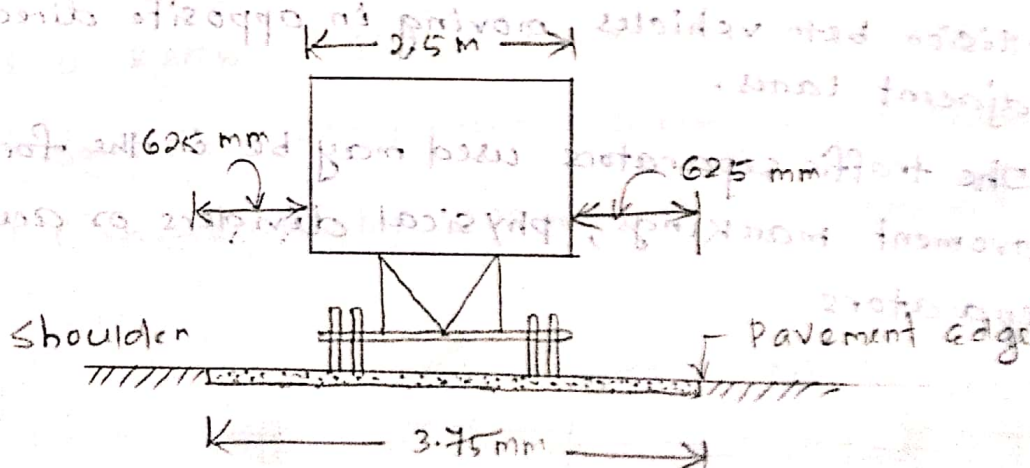 2,5 m
625 mm
625 mm
Shoulder
Pavement edge
3.75 mm